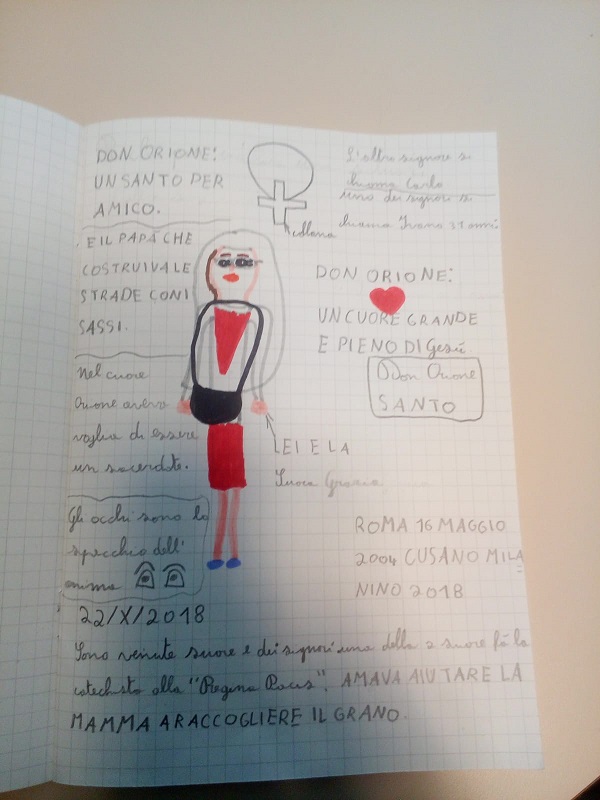 DON ORIONE:
UN SANTO PER
AMICO.
E IL PAPÀ CHE
COSTRUIVA LE
STRADE CON I
SASSI.
Nel cuore
Orione aveva
voglia di essere
un sacerdote.
Gli occhi sono lo
specchio dell'
anima
L'altro signore si
chiama Carlo
uno dei signori si
chiama Ivano 37 anni
collana
DON ORIONE:
UN CUORE GRANDE
E PIENO DI Gesù
Don Orione
SANTO
LEI E LA
Suora Grazia
ROMA 16 MAGGIO
2004 CUSANO MILA
NINO 2018
22/X/2018
Sono venute suore e dei signori una della 2 suore fà la
catechista alla "Regina Pacis". AMAVA AIUTARE LA
MAMMA A RACCOGLIERE IL GRANO.